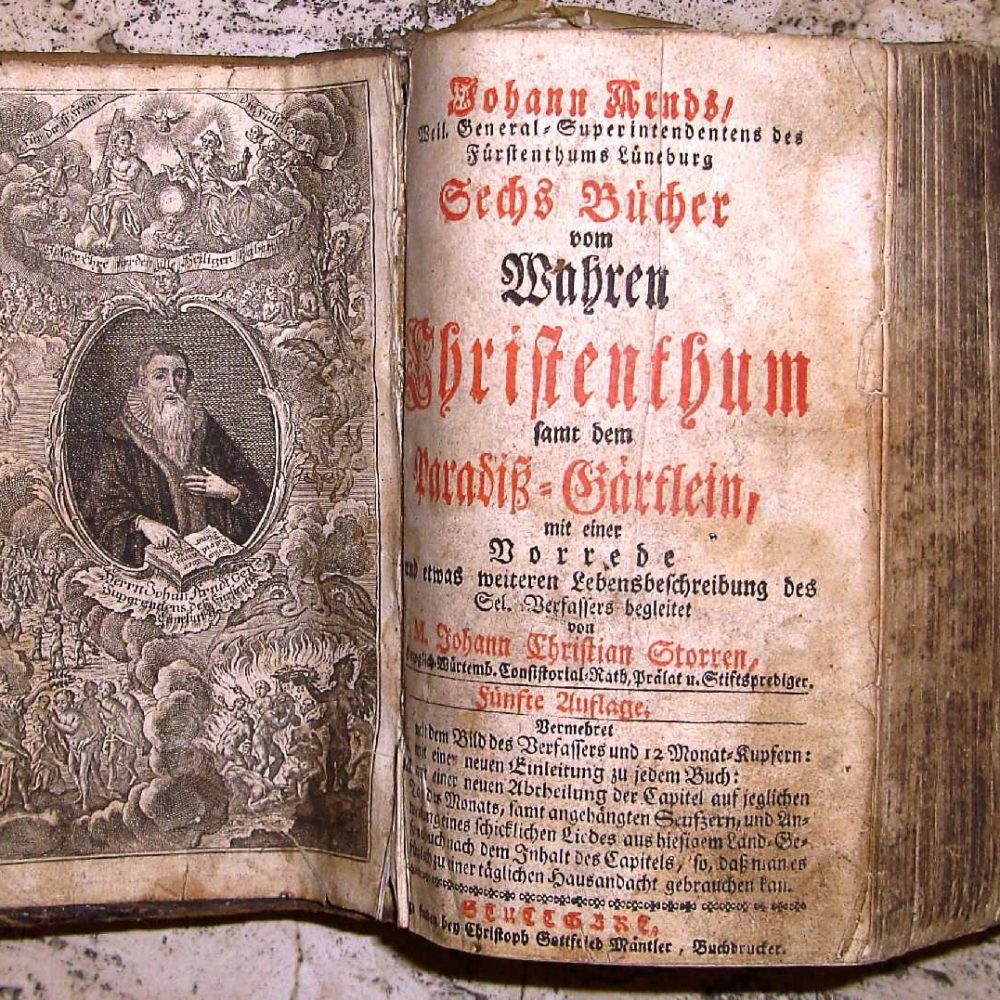 Für die Freunde
Solche Ehre werden alle Heiligen haben
Herrn Johan Arndt Gen:
Supprendens des
Lüneburg
Johann Arnds/
Weil. General-Superintendentens des
Fürstenthums Lüneburg
Sechs Bücher
vom
Wahren
Christenthum
samt dem
Paradiß-Gärtlein,
mit einer
Vorrede
und etwas weiteren Lebensbeschreibung des
Sel. Verfassers begleitet
von
M. Johann Christian Storren,
Würtemb. Consistorial-Rath, Prälat u. Stiftsprediger.
Fünfte Auflage,
Vermehret
mit dem Bild des Verfassers und 12 Monat-Kupfern:
mit einer neuen Einleitung zu jedem Buch:
mit einer neuen Abtheilung der Capitel auf jeglichen
Tag des Monats, samt angehängten Seufzern, und An-
eines schicklichen Liedes aus hiesigem Land-Ge-
nach dem Inhalt des Capitels, so, daß man es
zu einer täglichen Hausandacht gebrauchen kan.
STUTTGART,
zu finden bey Christoph Gottfried Mäntler, Buchdrucker.